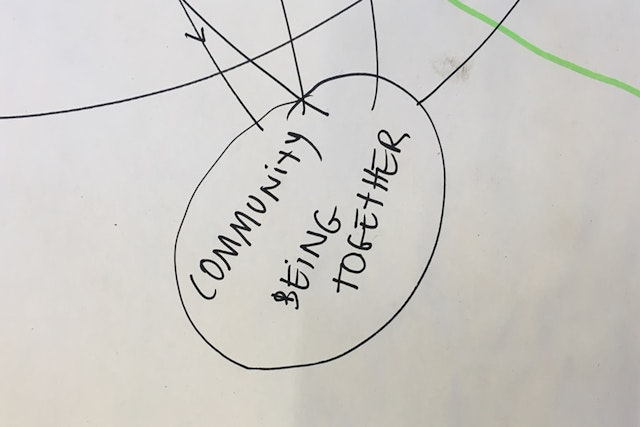 COMMUNiTY
BEiNG
TOGETHER